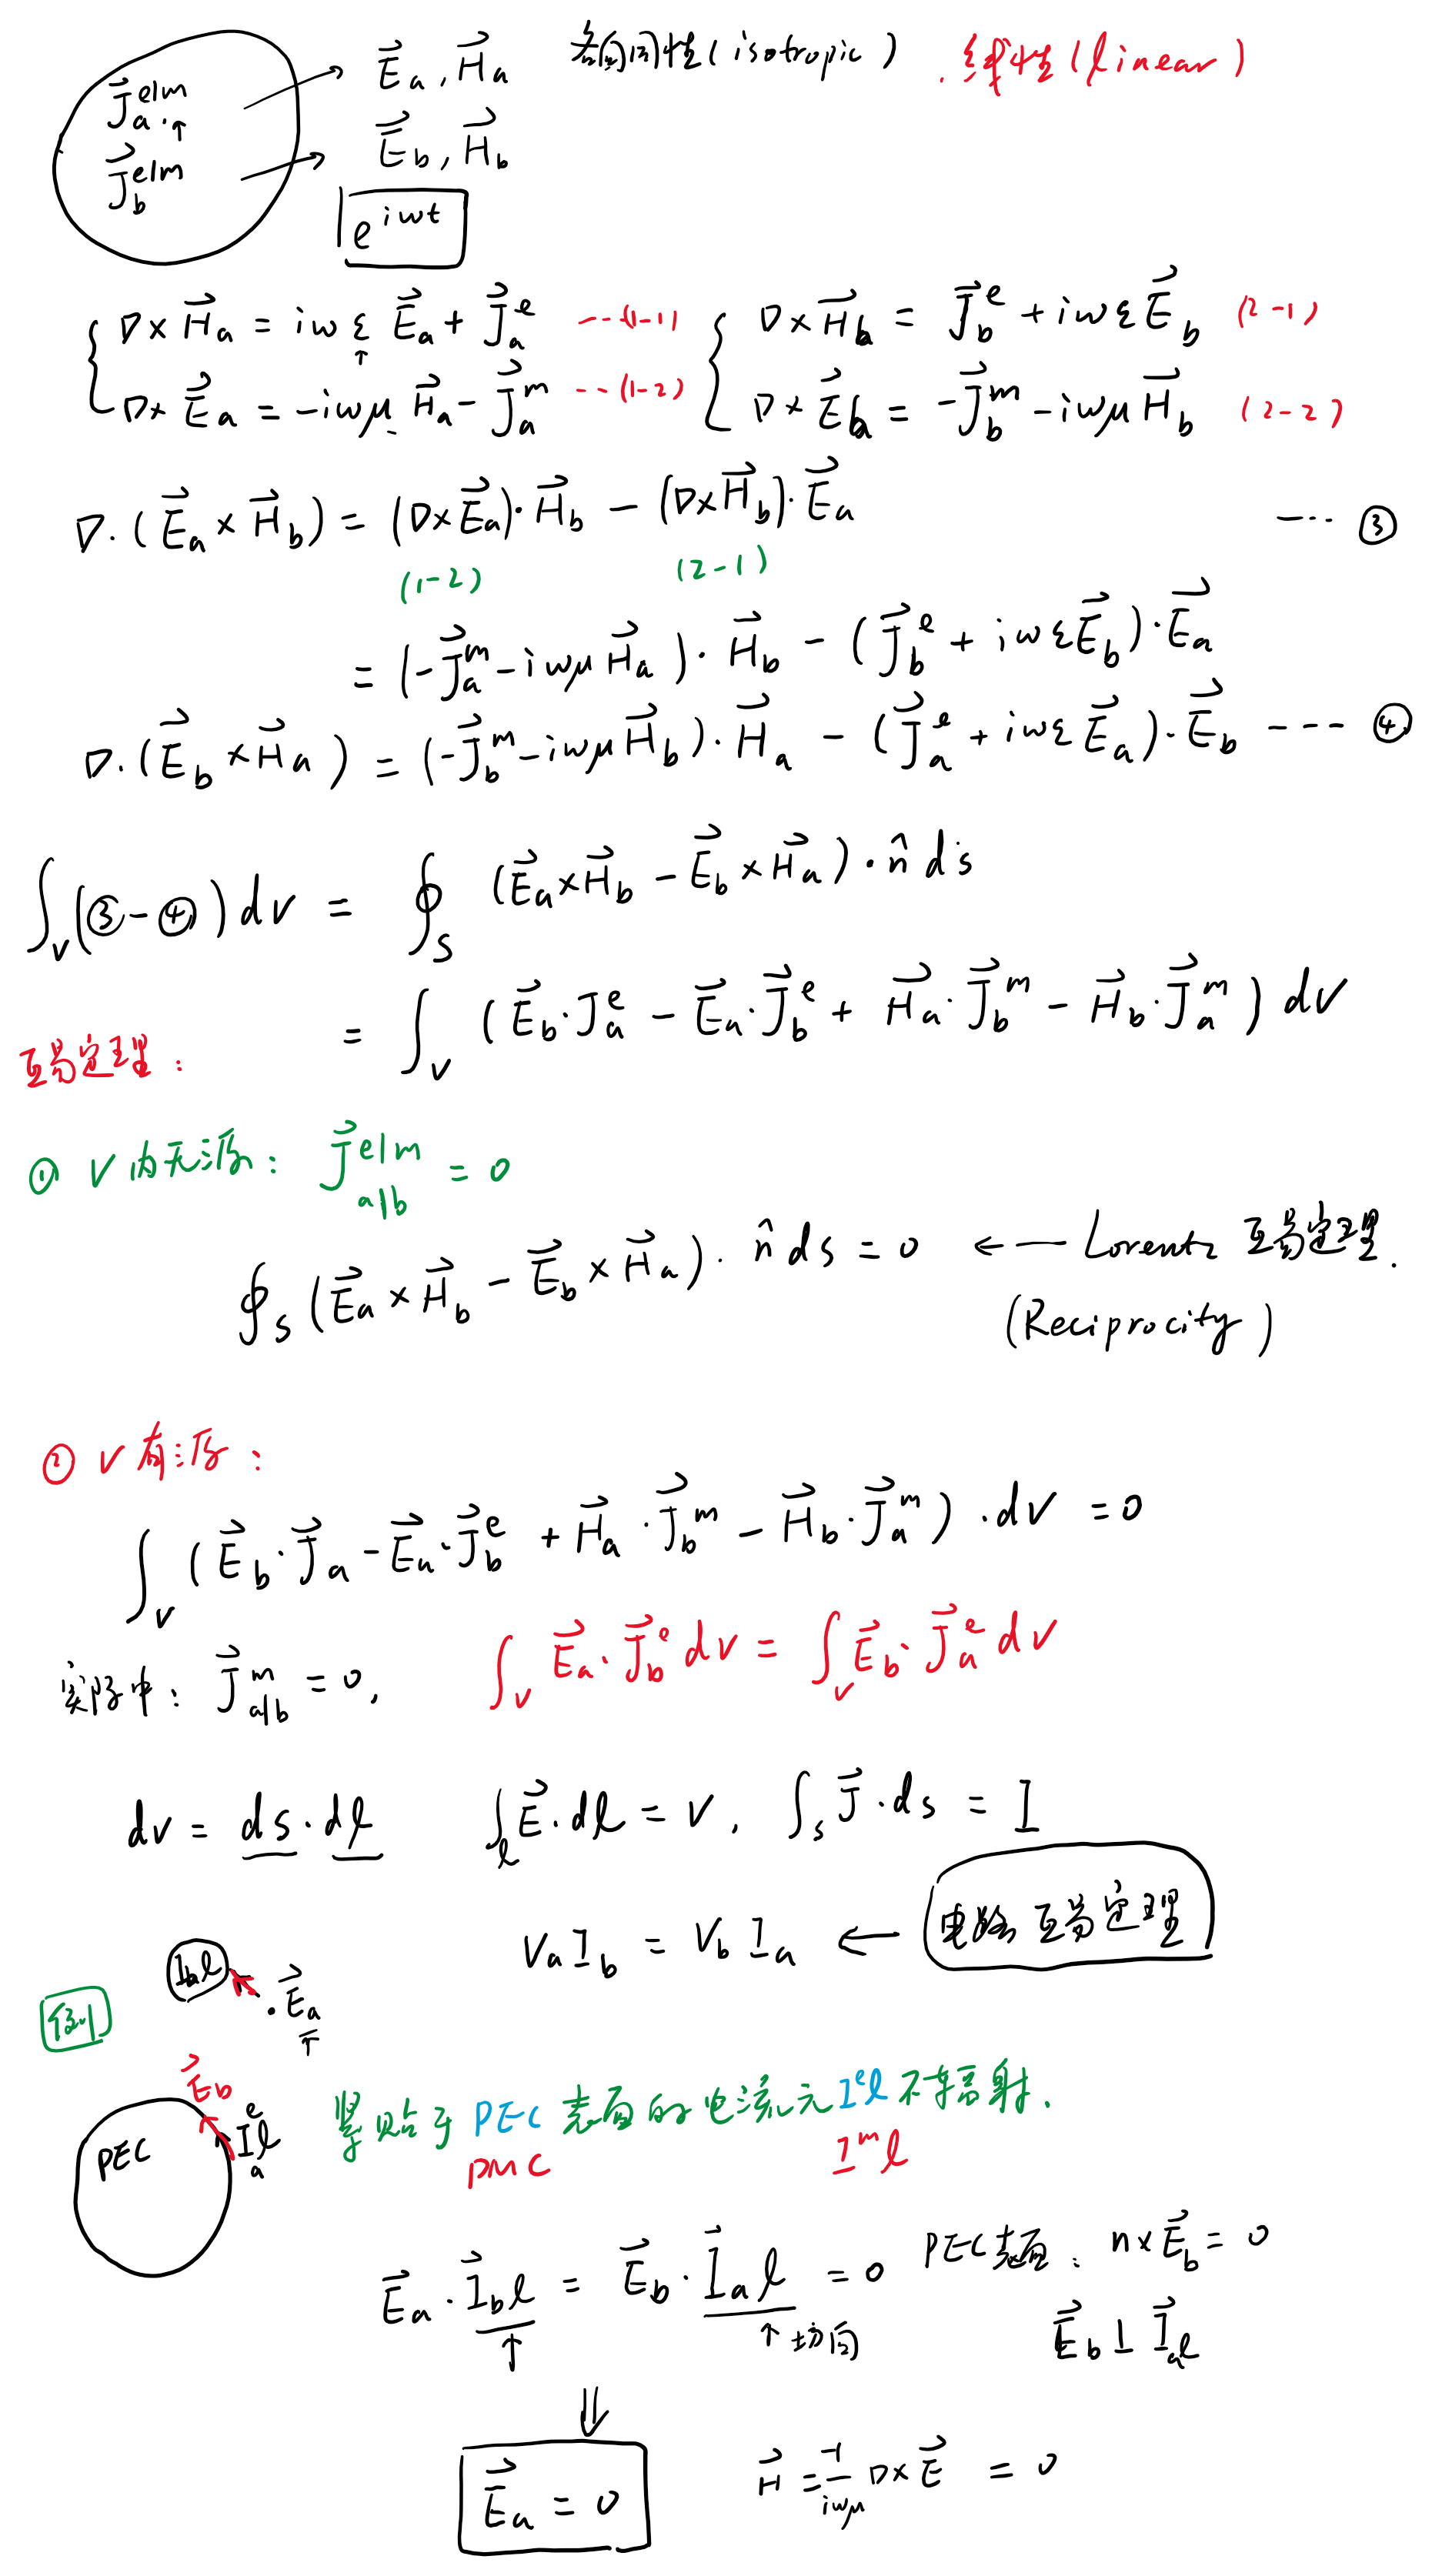 J⃗_a^{e|m} → E⃗_a, H⃗_a 各向同性(isotropic). 线性(linear)
J⃗_b^{e|m} → E⃗_b, H⃗_b
e^{iωt}
{ ∇× H⃗_a = iωε E⃗_a + J⃗_a^e ---(1-1) { ∇× H⃗_b = J⃗_b^e + iωε E⃗_b (2-1)
∇× E⃗_a = -iωμ H⃗_a - J⃗_a^m ---(1-2) ∇× E⃗_b = -J⃗_b^m - iωμ H⃗_b (2-2)
∇·(E⃗_a × H⃗_b) = (∇×E⃗_a)·H⃗_b - (∇×H⃗_b)·E⃗_a ---- ③
(1-2) (2-1)
= (-J⃗_a^m - iωμ H⃗_a)·H⃗_b - (J⃗_b^e + iωε E⃗_b)·E⃗_a
∇·(E⃗_b × H⃗_a) = (-J⃗_b^m - iωμ H⃗_b)·H⃗_a - (J⃗_a^e + iωε E⃗_a)·E⃗_b ---- ④
∫_V (③-④) dv = ∮_S (E⃗_a × H⃗_b - E⃗_b × H⃗_a)·n̂ ds
= ∫_V (E⃗_b·J_a^e - E⃗_a·J⃗_b^e + H⃗_a·J⃗_b^m - H⃗_b·J⃗_a^m) dV
互易定理:
① V内无源: J⃗_{a|b}^{e|m} = 0
∮_S (E⃗_a × H⃗_b - E⃗_b × H⃗_a)·n̂ ds = 0 ←— Lorentz 互易定理.
(Reciprocity)
② V有源:
∫_V (E⃗_b·J⃗_a - E⃗_a·J⃗_b^e + H⃗_a·J⃗_b^m - H⃗_b·J⃗_a^m)·dV = 0
实际中: J⃗_{a|b}^m = 0, ∫_V E⃗_a·J⃗_b^e dV = ∫_V E⃗_b·J⃗_a^e dV
dv = ds·dl ∫_l E⃗·dl = V, ∫_s J⃗·ds = I
V_a I_b = V_b I_a ← 电路互易定理
I_b l · E⃗_a
例
E⃗_b
PEC I_a^e l
紧贴于PEC表面的电流元I^e l不辐射.
PMC I^m l
E⃗_a·I⃗_b l = E⃗_b·I⃗_a l = 0 PEC表面: n×E⃗_b = 0
↑ ↑切向 E⃗_b ⊥ I⃗_a l
⇓
E⃗_a = 0 H⃗ = -1/iωμ ∇×E⃗ = 0